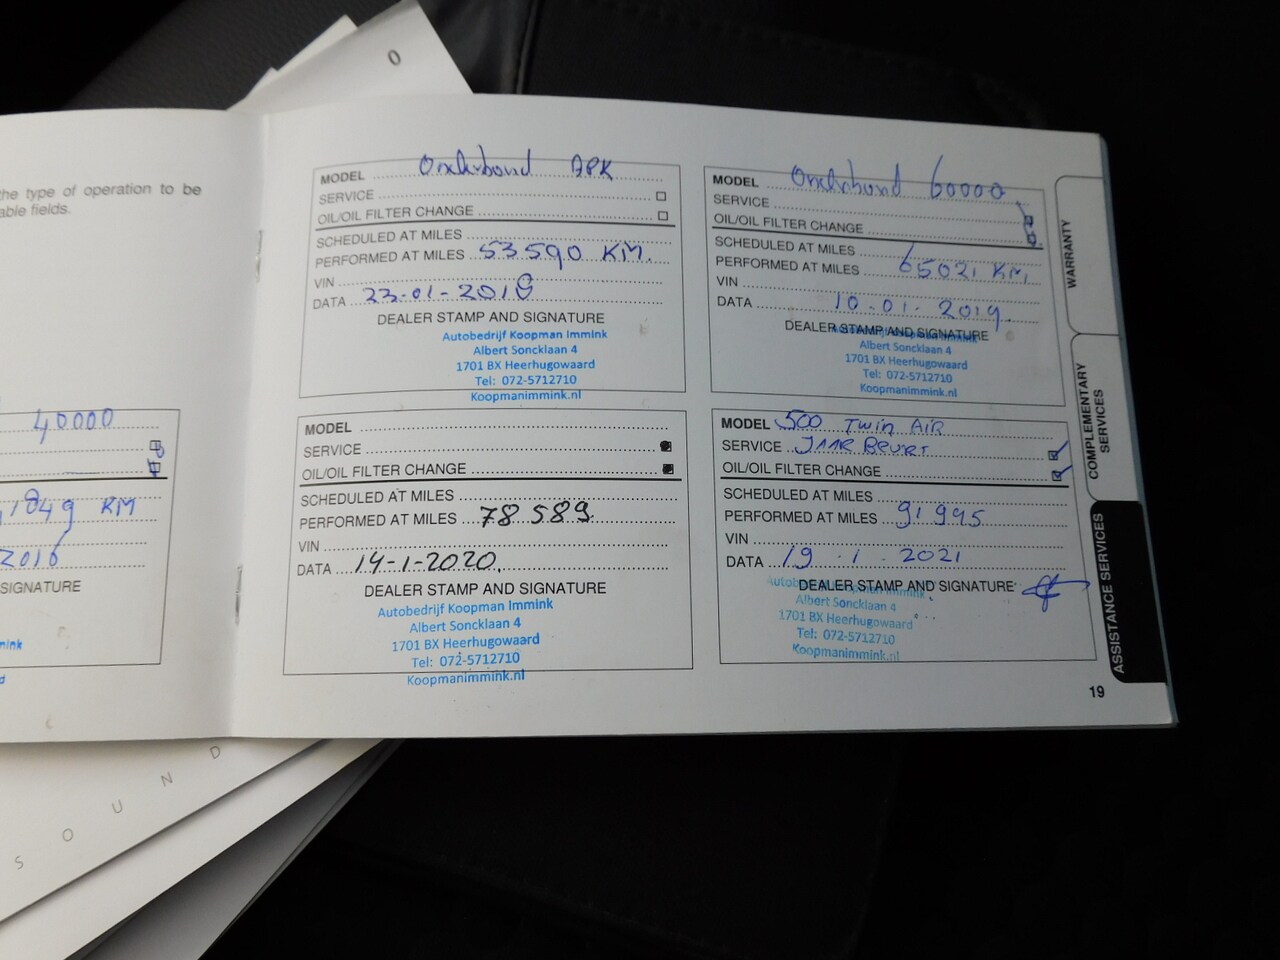 0
the type of operation to be
able fields.
40000
KM
2016
SIGNATURE
MODEL Onderhoud APK
SERVICE
OIL/OIL FILTER CHANGE
SCHEDULED AT MILES
PERFORMED AT MILES 53590 KM.
VIN
DATA 23-01-2018
DEALER STAMP AND SIGNATURE
Autobedrijf Koopman Immink
Albert Soncklaan 4
1701 BX Heerhugowaard
Tel: 072-5712710
Koopmanimmink.nl
MODEL Onderhoud 60000
SERVICE
OIL/OIL FILTER CHANGE
SCHEDULED AT MILES
PERFORMED AT MILES 65021 KM
VIN
DATA 10-01-2019.
DEALER STAMP AND SIGNATURE
Albert Soncklaan 4
1701 BX Heerhugowaard
Tel: 072-5712710
Koopmanimmink.nl
MODEL
SERVICE
OIL/OIL FILTER CHANGE
SCHEDULED AT MILES
PERFORMED AT MILES 78589
VIN
DATA 14-1-2020.
DEALER STAMP AND SIGNATURE
Autobedrijf Koopman Immink
Albert Soncklaan 4
1701 BX Heerhugowaard
Tel: 072-5712710
Koopmanimmink.nl
MODEL 500 Twin AIR
SERVICE JAAR BEURT
OIL/OIL FILTER CHANGE
SCHEDULED AT MILES
PERFORMED AT MILES 91995
VIN
DATA 19.1.2021
DEALER STAMP AND SIGNATURE
Albert Soncklaan 4
1701 BX Heerhugowaard
Tel: 072-5712710
Koopmanimmink.nl
WARRANTY
COMPLEMENTARY
SERVICES
ASSISTANCE SERVICES
19
SOUND